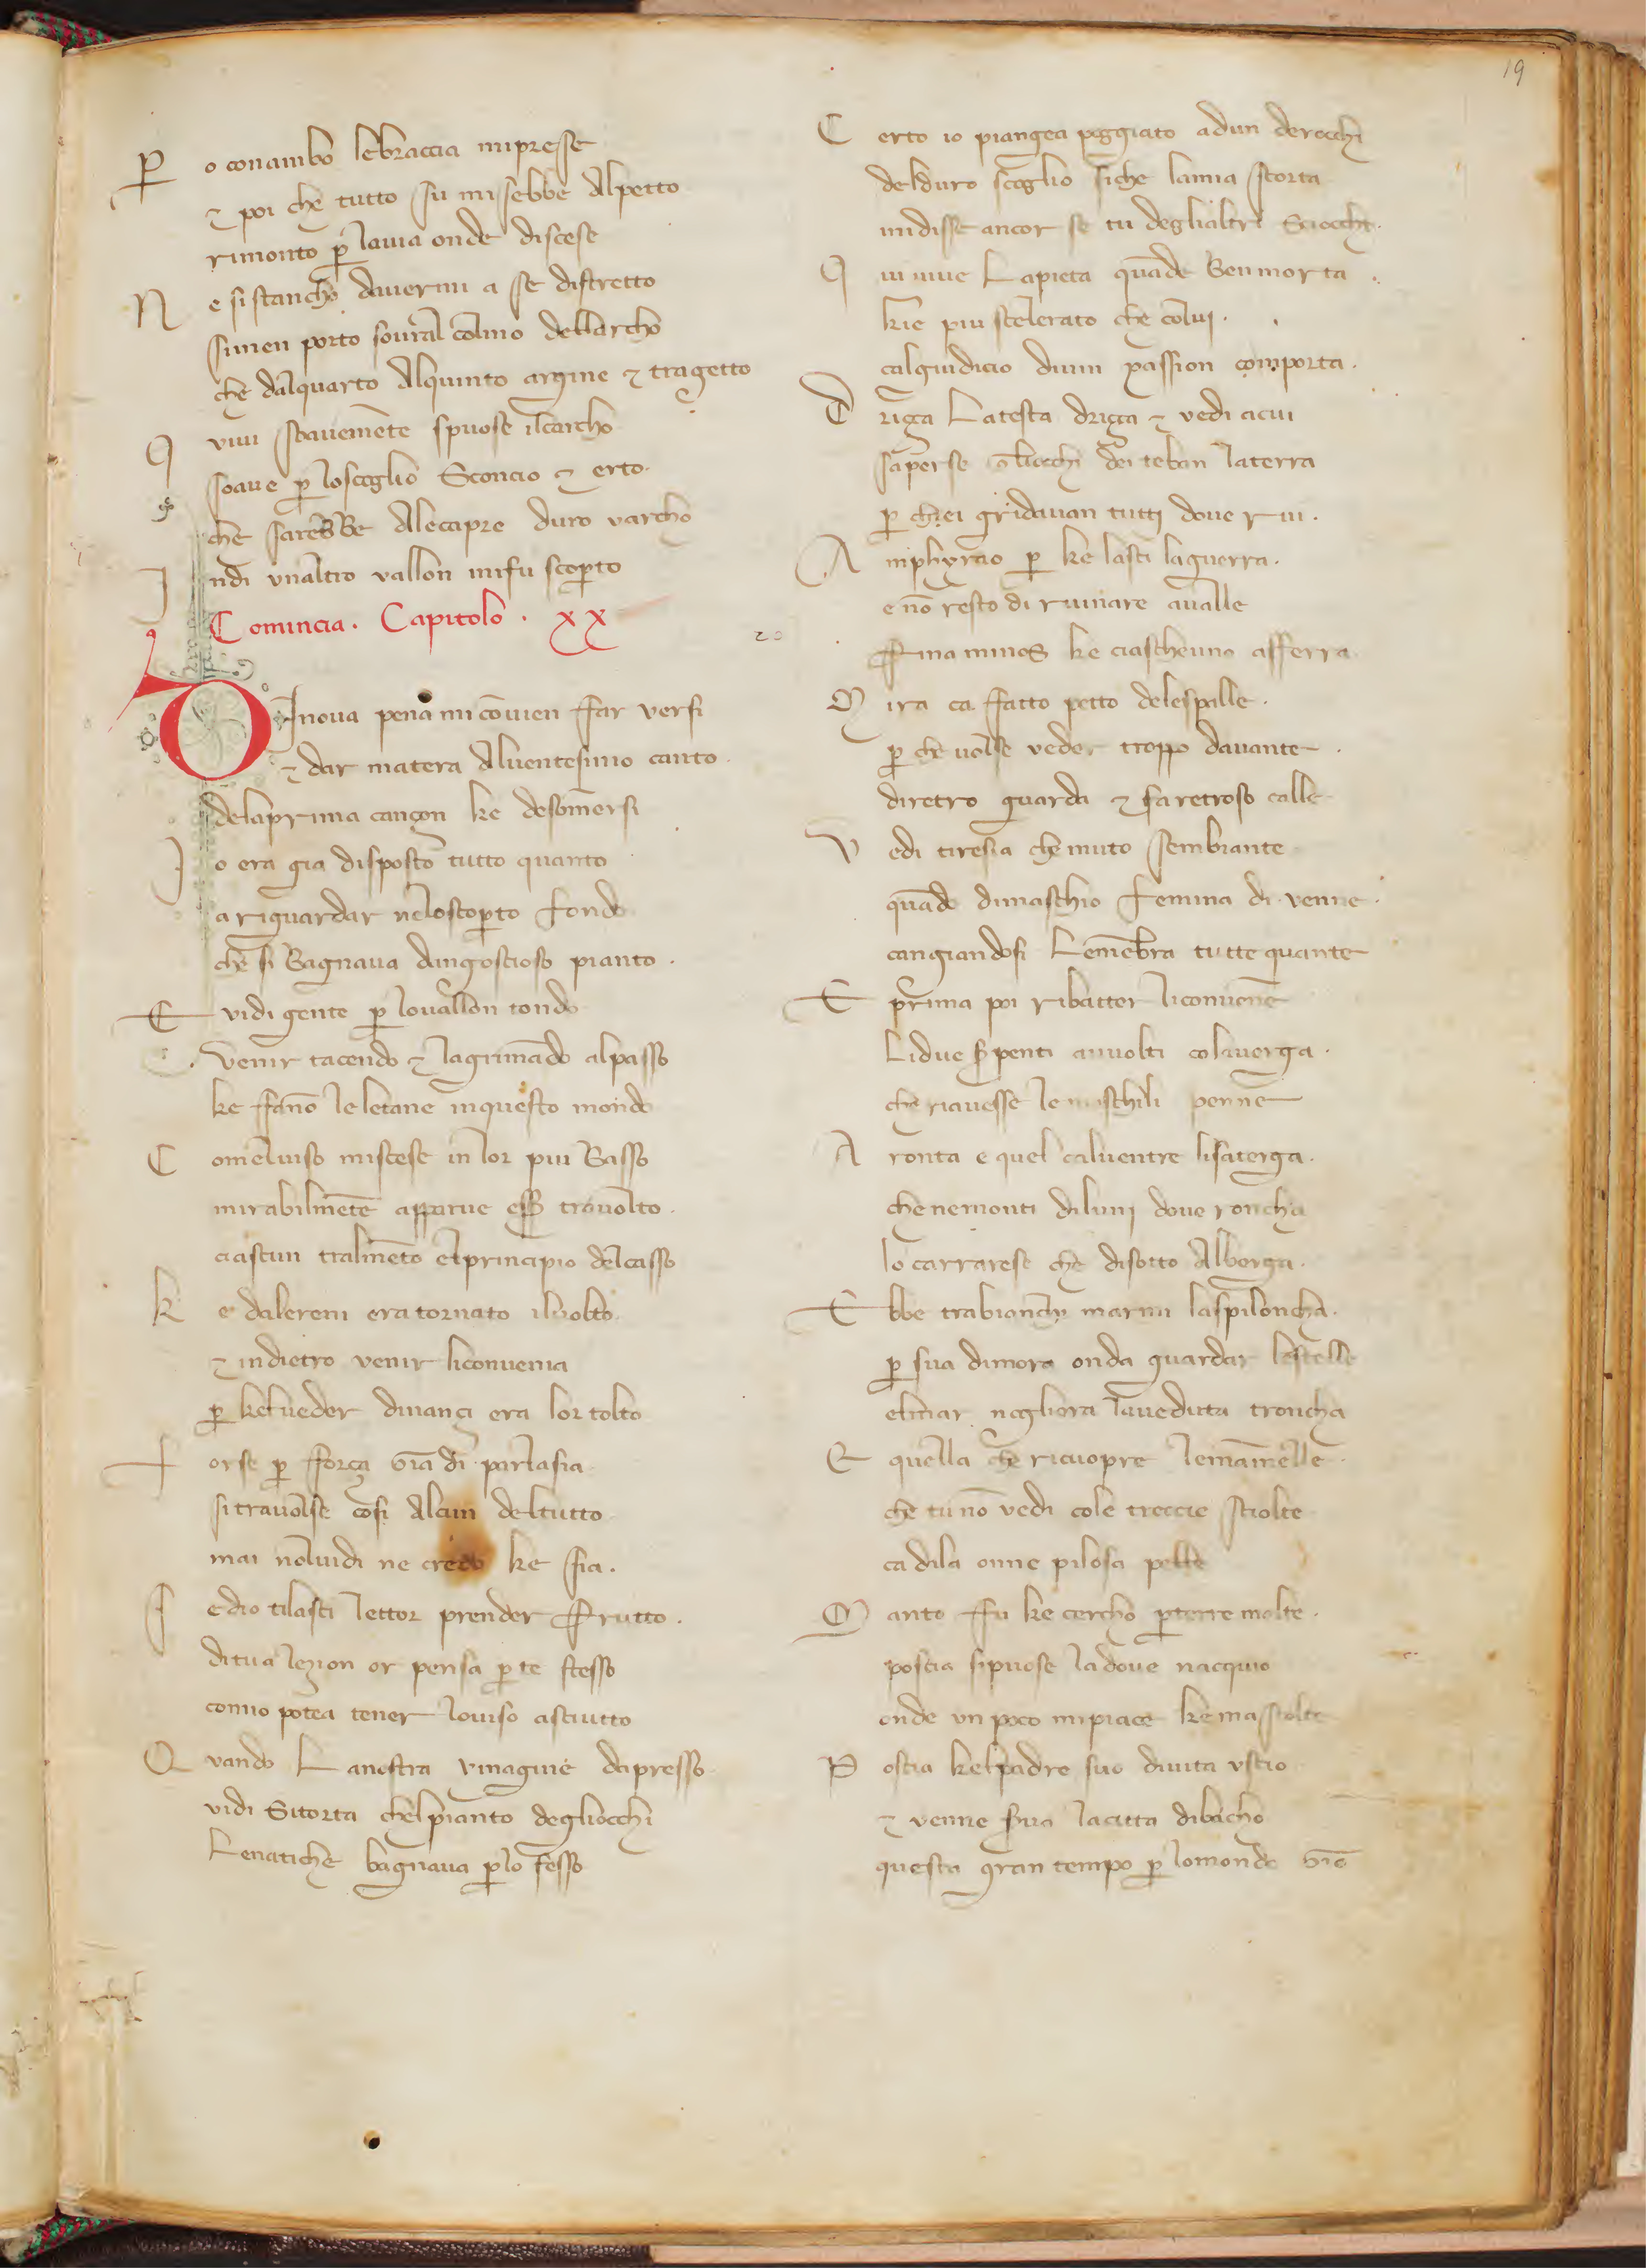 19
P o conambo lebraccia mipresse
⁊ poi che tutto su misebbe Alpetto
rimonto p̱ lauia onde discese
N e sistancho dauermi a se distretto
simen porto soural colmo dellarcho
che dalquarto Alquinto argine ⁊ tragetto
Q uiui soauemēte spuose ilcarcho
soaue p̱ loscoglio Sconcio ⁊ erto
che sarebbe Alecapre duro varcho
I ndi vnaltro vallon mifu scoperto
Comincia. Capitolo. xx
DInoua pena mi cōuien ffar versi
⁊ dar matera Aluentesimo canto.
delaprima cançon ke desomersi
I o era gia disposto tutto quanto
a riguardar neloscoperto fondo
che si Bagnaua dangoscioso pianto.
E vidi gente p̱ louallon tondo
venir tacendo ⁊ lagrimādo alpasso
ke ffāno leletane inquesto mondo
C omeluiso miscese in lor piu Basso
mirabilmēte apparue esser trauolto.
ciascun tralmento elprincipio delcasso
K e dalereni era tornato iluolto.
⁊ indietro venir liconuenia
p̱ kelueder dinançi era lor tolto
F orse p̱ fforça gia di parlasia
sitrauolse cosi Alcun deltutto
mai noluidi ne credo ke sia.
S edio tilasci lettor prender ffrutto.
ditua lezion or pensa p̱ te stesso
comio potea tener louiso asciutto
Q uando Lanostra ymagine dapresso
vidi Sitorta chelpianto degliocchi
Lenatiche bagnaua p̱lo fesso
C erto io piangea poggiato adun derocchi
delduro scoglio siche lamia scorta
midisse ancor se tu deglialtri Sciocchi.
Q ui uiue Lapieta quāde Benmorta.
kie piu scelerato che colui.
calgiudicio diuin passion comporta.
D riça Latesta driça ⁊ vedi acui
saperse agliocchi dei teban laterra
p̱ chei gridauan tutti doue rui.
A mphyrao p̱ ke lasci laguerra.
e nō resto di ruinare aualle
ffina minos ke ciascheuno afferra
M ira ca ffatto petto delespalle.
p̱ che uolse veder troppo dauante.
diretro guarda ⁊ fa retroso calle
V edi tiresia che muto sembiante
quādo dimaschio femina di venne.
cangiandosi Lemēbra tutte quante
E prima poi ribatter liconuenne
Lidue serpenti auuolti colauerga.
che riauesse le maschili penne
A ronta e quel caluentre lisaterga.
che nemonti diluni doue roncha
lo carrarese che disotto Alberga.
E bbe trabianchi marmi laspiloncha.
p̱ sua dimora onda guardar lestelle
elmar nogliera laueduta troncha
E quella che ricuopre lemāmelle.
che tu nō vedi cole treccie sciolte
ca dila onne pilosa pelle
M anto ffu ke cercho p̱terre molte.
poscia sipuose ladoue nacquio
onde vn poco mipiace ke mascolte
P oscia kelpadre suo diuita vscio
⁊ venne serua lacitta dibacho
questa gran tempo p̱ lomondo gio